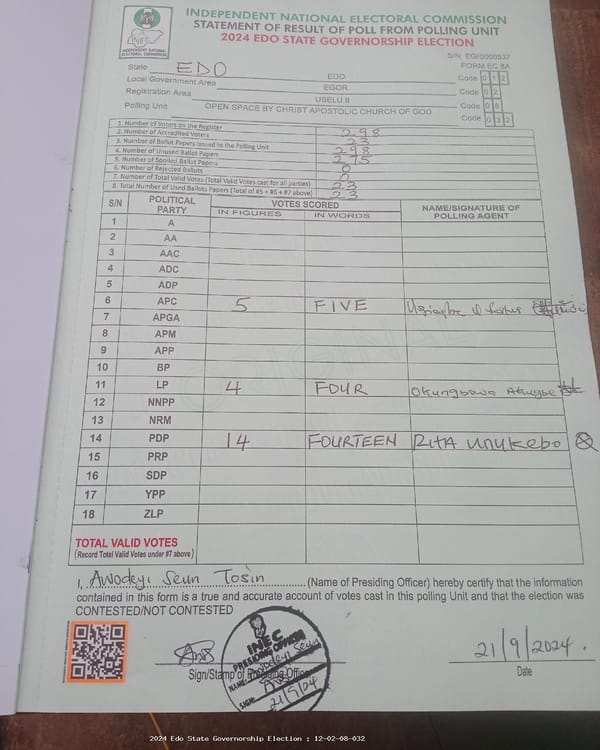 INDEPENDENT NATIONAL ELECTORAL COMMISSION
STATEMENT OF RESULT OF POLL FROM POLLING UNIT
2024 EDO STATE GOVERNORSHIP ELECTION
INEC
INDEPENDENT NATIONAL ELECTORAL COMMISSION
S/N: EG/0000537
FORM EC 8A
State EDO EDO Code 0 1 2
Local Government Area EGOR Code 0 2
Registration Area USELU II Code 0 8
Polling Unit OPEN SPACE BY CHRIST APOSTOLIC CHURCH OF GOD Code 0 3 2
1. Number of Voters on the Register 298
2. Number of Accredited Voters 23
3. Number of Ballot Papers Issued to the Polling Unit 298
4. Number of Unused Ballot Papers 275
5. Number of Spoiled Ballot Papers 0
6. Number of Rejected Ballots 0
7. Number of Total Valid Votes (Total Valid Votes cast for all parties) 23
8. Total Number of Used Ballots Papers (Total of #5 + #6 + #7 above) 23
S/N POLITICAL PARTY VOTES SCORED NAME/SIGNATURE OF POLLING AGENT
IN FIGURES IN WORDS
1 A
2 AA
3 AAC
4 ADC
5 ADP
6 APC 5 FIVE
7 APGA
8 APM
9 APP
10 BP
11 LP 4 FOUR Okungbowa
12 NNPP
13 NRM
14 PDP 14 FOURTEEN RITA UNUKEBO
15 PRP
16 SDP
17 YPP
18 ZLP
TOTAL VALID VOTES
(Record Total Valid Votes under #7 above)
I, Awodeyi Seun Tosin (Name of Presiding Officer) hereby certify that the information
contained in this form is a true and accurate account of votes cast in this polling Unit and that the election was
CONTESTED/NOT CONTESTED
INEC
PRESIDING OFFICER
NAME: Awodeyi Seun
SIGN:
21/9/24
Sign/Stamp of Presiding Officer
21/9/2024.
Date
2024 Edo State Governorship Election : 12-02-08-032